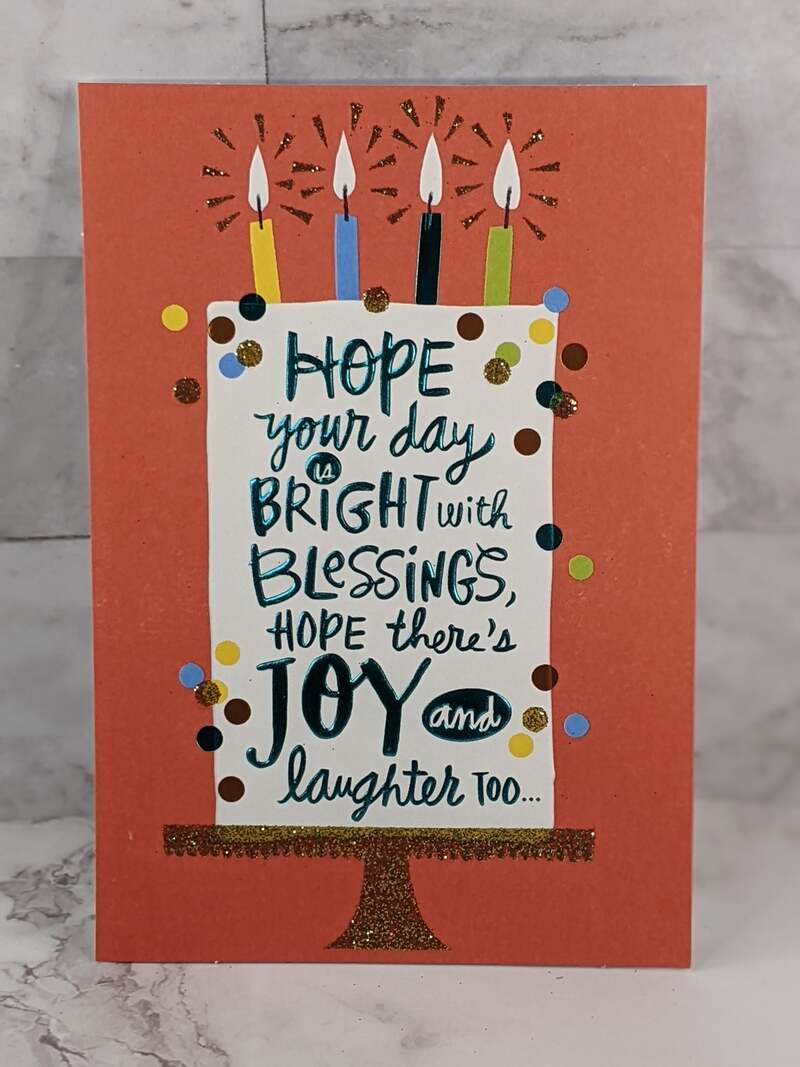 HOPE
your day
is
BRiGHT with
BLeSSiNGS,
HOPE there's
JOY and
laughter TOO...